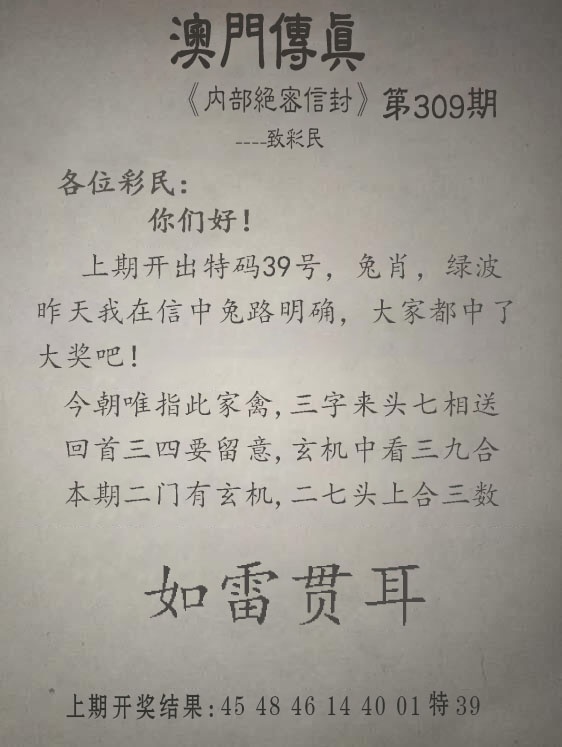 澳門傳真
《内部絕密信封》第309期
----致彩民
各位彩民：
你们好！
上期开出特码39号，兔肖，绿波
昨天我在信中兔路明确，大家都中了
大奖吧！
今朝唯指此家禽,三字来头七相送
回首三四要留意,玄机中看三九合
本期二门有玄机,二七头上合三数
如雷贯耳
上期开奖结果:45 48 46 14 40 01 特39